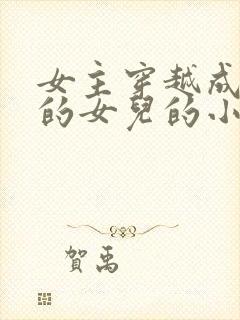 女主穿越成
的女兒的小
賀禹